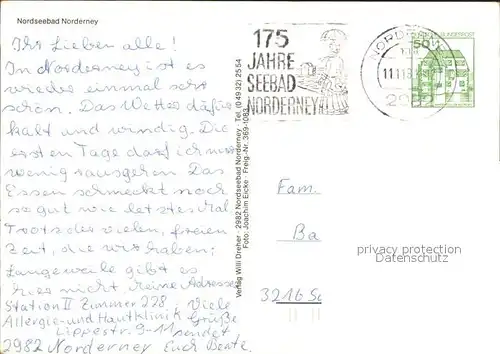 Nordseebad Norderney
Ihr Lieben alle!
In Norderney ist es
wieder einmal sehr
schön. Das Wetter dafür
kalt und windig. Die
ersten Tage darf ich nur
wenig rausgehen. Das
Essen schmeckt noch
so gut wie letztes Mal.
Trotz der vielen, freien
Zeit, die wir haben;
Langeweile gibt es
hier nicht. Meine Adresse:
Station II Zimmer 228. Viele
Allergie- und Hautklinik Grüße
Lippestr. 9-11 sendet
2982 Norderney Euch Beate.
Verlag Willi Dreher · 2982 Nordseebad Norderney · Tel. (04932) 2554
Foto: Joachim Eicke · Freig.-Nr. 369-1063
175
JAHRE
SEEBAD
NORDERNEY
NORDERNEY
50
Fam.
Ba
3216 Sa
privacy protection
Datenschutz